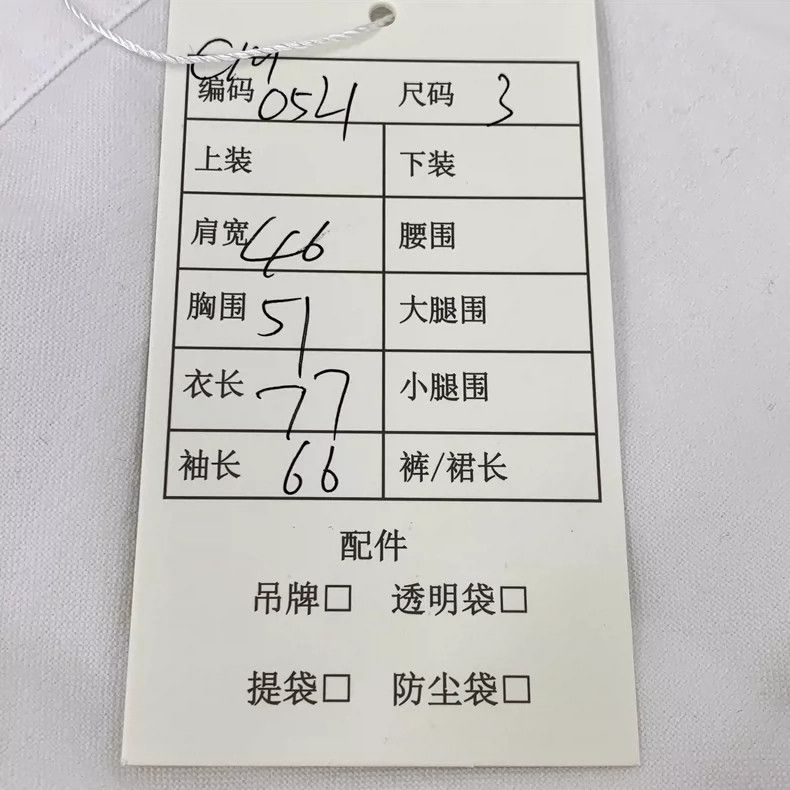 编码 054 尺码 3
上装 下装
肩宽 46 腰围
胸围 51 大腿围
衣长 77 小腿围
袖长 66 裤/裙长
配件
吊牌□ 透明袋□
提袋□ 防尘袋□